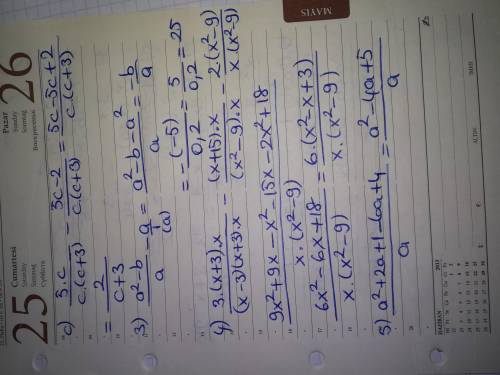 MAYIS
25 Cumartesi
Saturday
Samstag
Суббота
Pazar
Sunday
Sonntag
Воскресенье
26
c) 5·c / c·(c+3) − 3c−2 / c·(c+3) = 5c−3c+2 / c·(c+3)
= 2 / c+3
3) a²−b / a − a / 1 (a) = a²−b−a² / a = −b / a
= −(−5) / 0,2 = 5 / 0,2 = 25
4) 3·(x+3)·x / (x−3)(x+3)·x − (x+15)·x / (x²−9)·x − 2(x²−9) / x·(x²−9)
9x²+9x−x²−15x−2x²+18 / x·(x²−9)
6x²−6x+18 / x·(x²−9) = 6·(x²−x+3) / x·(x²−9)
5) a²+2a+1−6a+4 / a = a²−4a+5 / a
HAZIRAN 2013